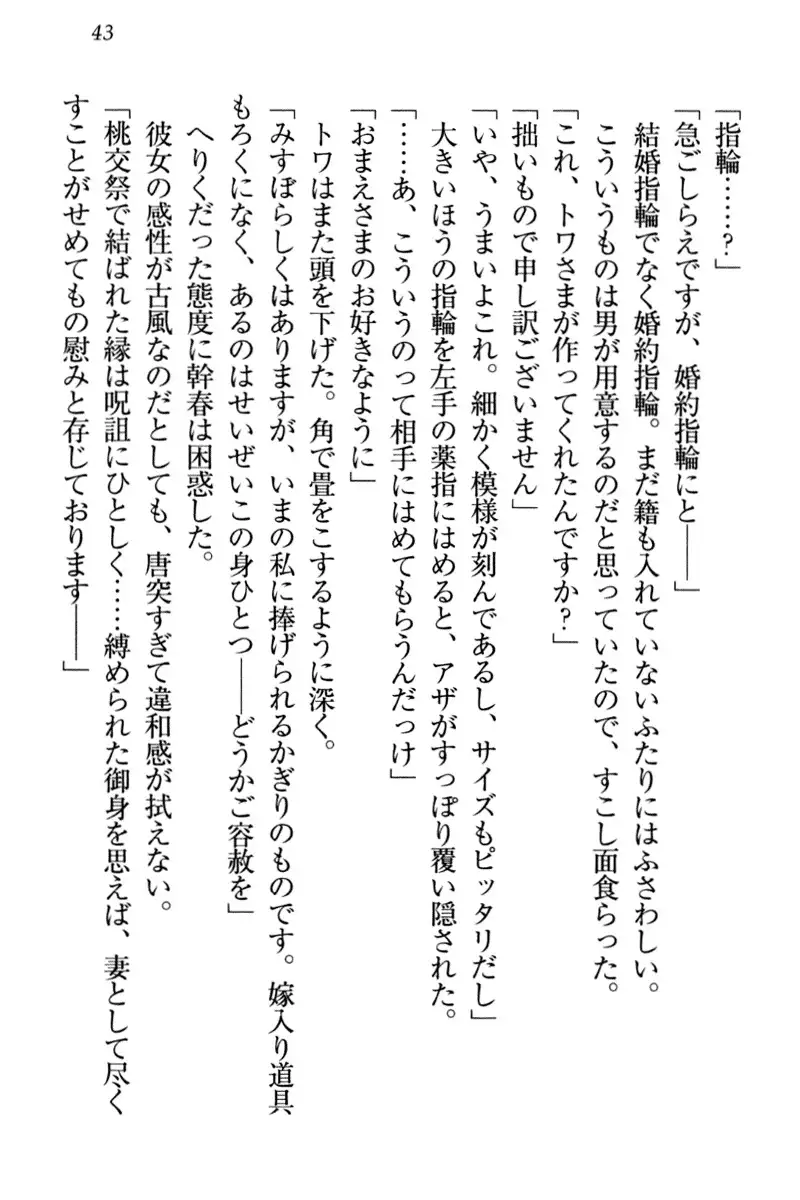 43
「指輪……？」
「急ごしらえですが、婚約指輪にと――」
結婚指輪でなく婚約指輪。まだ籍も入れていないふたりにはふさわしい。
こういうものは男が用意するのだと思っていたので、すこし面食らった。
「これ、トワさまが作ってくれたんですか？」
「拙いもので申し訳ございません」
「いや、うまいよこれ。細かく模様が刻んであるし、サイズもピッタリだし」
大きいほうの指輪を左手の薬指にはめると、アザがすっぽり覆い隠された。
「……あ、こういうのって相手にはめてもらうんだっけ」
「おまえさまのお好きなように」
トワはまた頭を下げた。角で畳をこするように深く。
「みすぼらしくはありますが、いまの私に捧げられるかぎりのものです。嫁入り道具
もろくになく、あるのはせいぜいこの身ひとつ――どうかご容赦を」
へりくだった態度に幹春は困惑した。
彼女の感性が古風なのだとしても、唐突すぎて違和感が拭えない。
「桃交祭で結ばれた縁は呪詛にひとしく……縛められた御身を思えば、妻として尽く
すことがせめてもの慰みと存じております――」